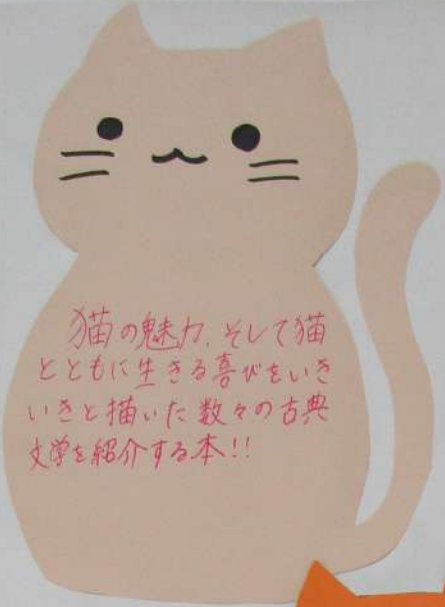 猫の魅力、そして猫
とともに生きる喜びをいき
いきと描いた数々の古典
文学を紹介する本!!